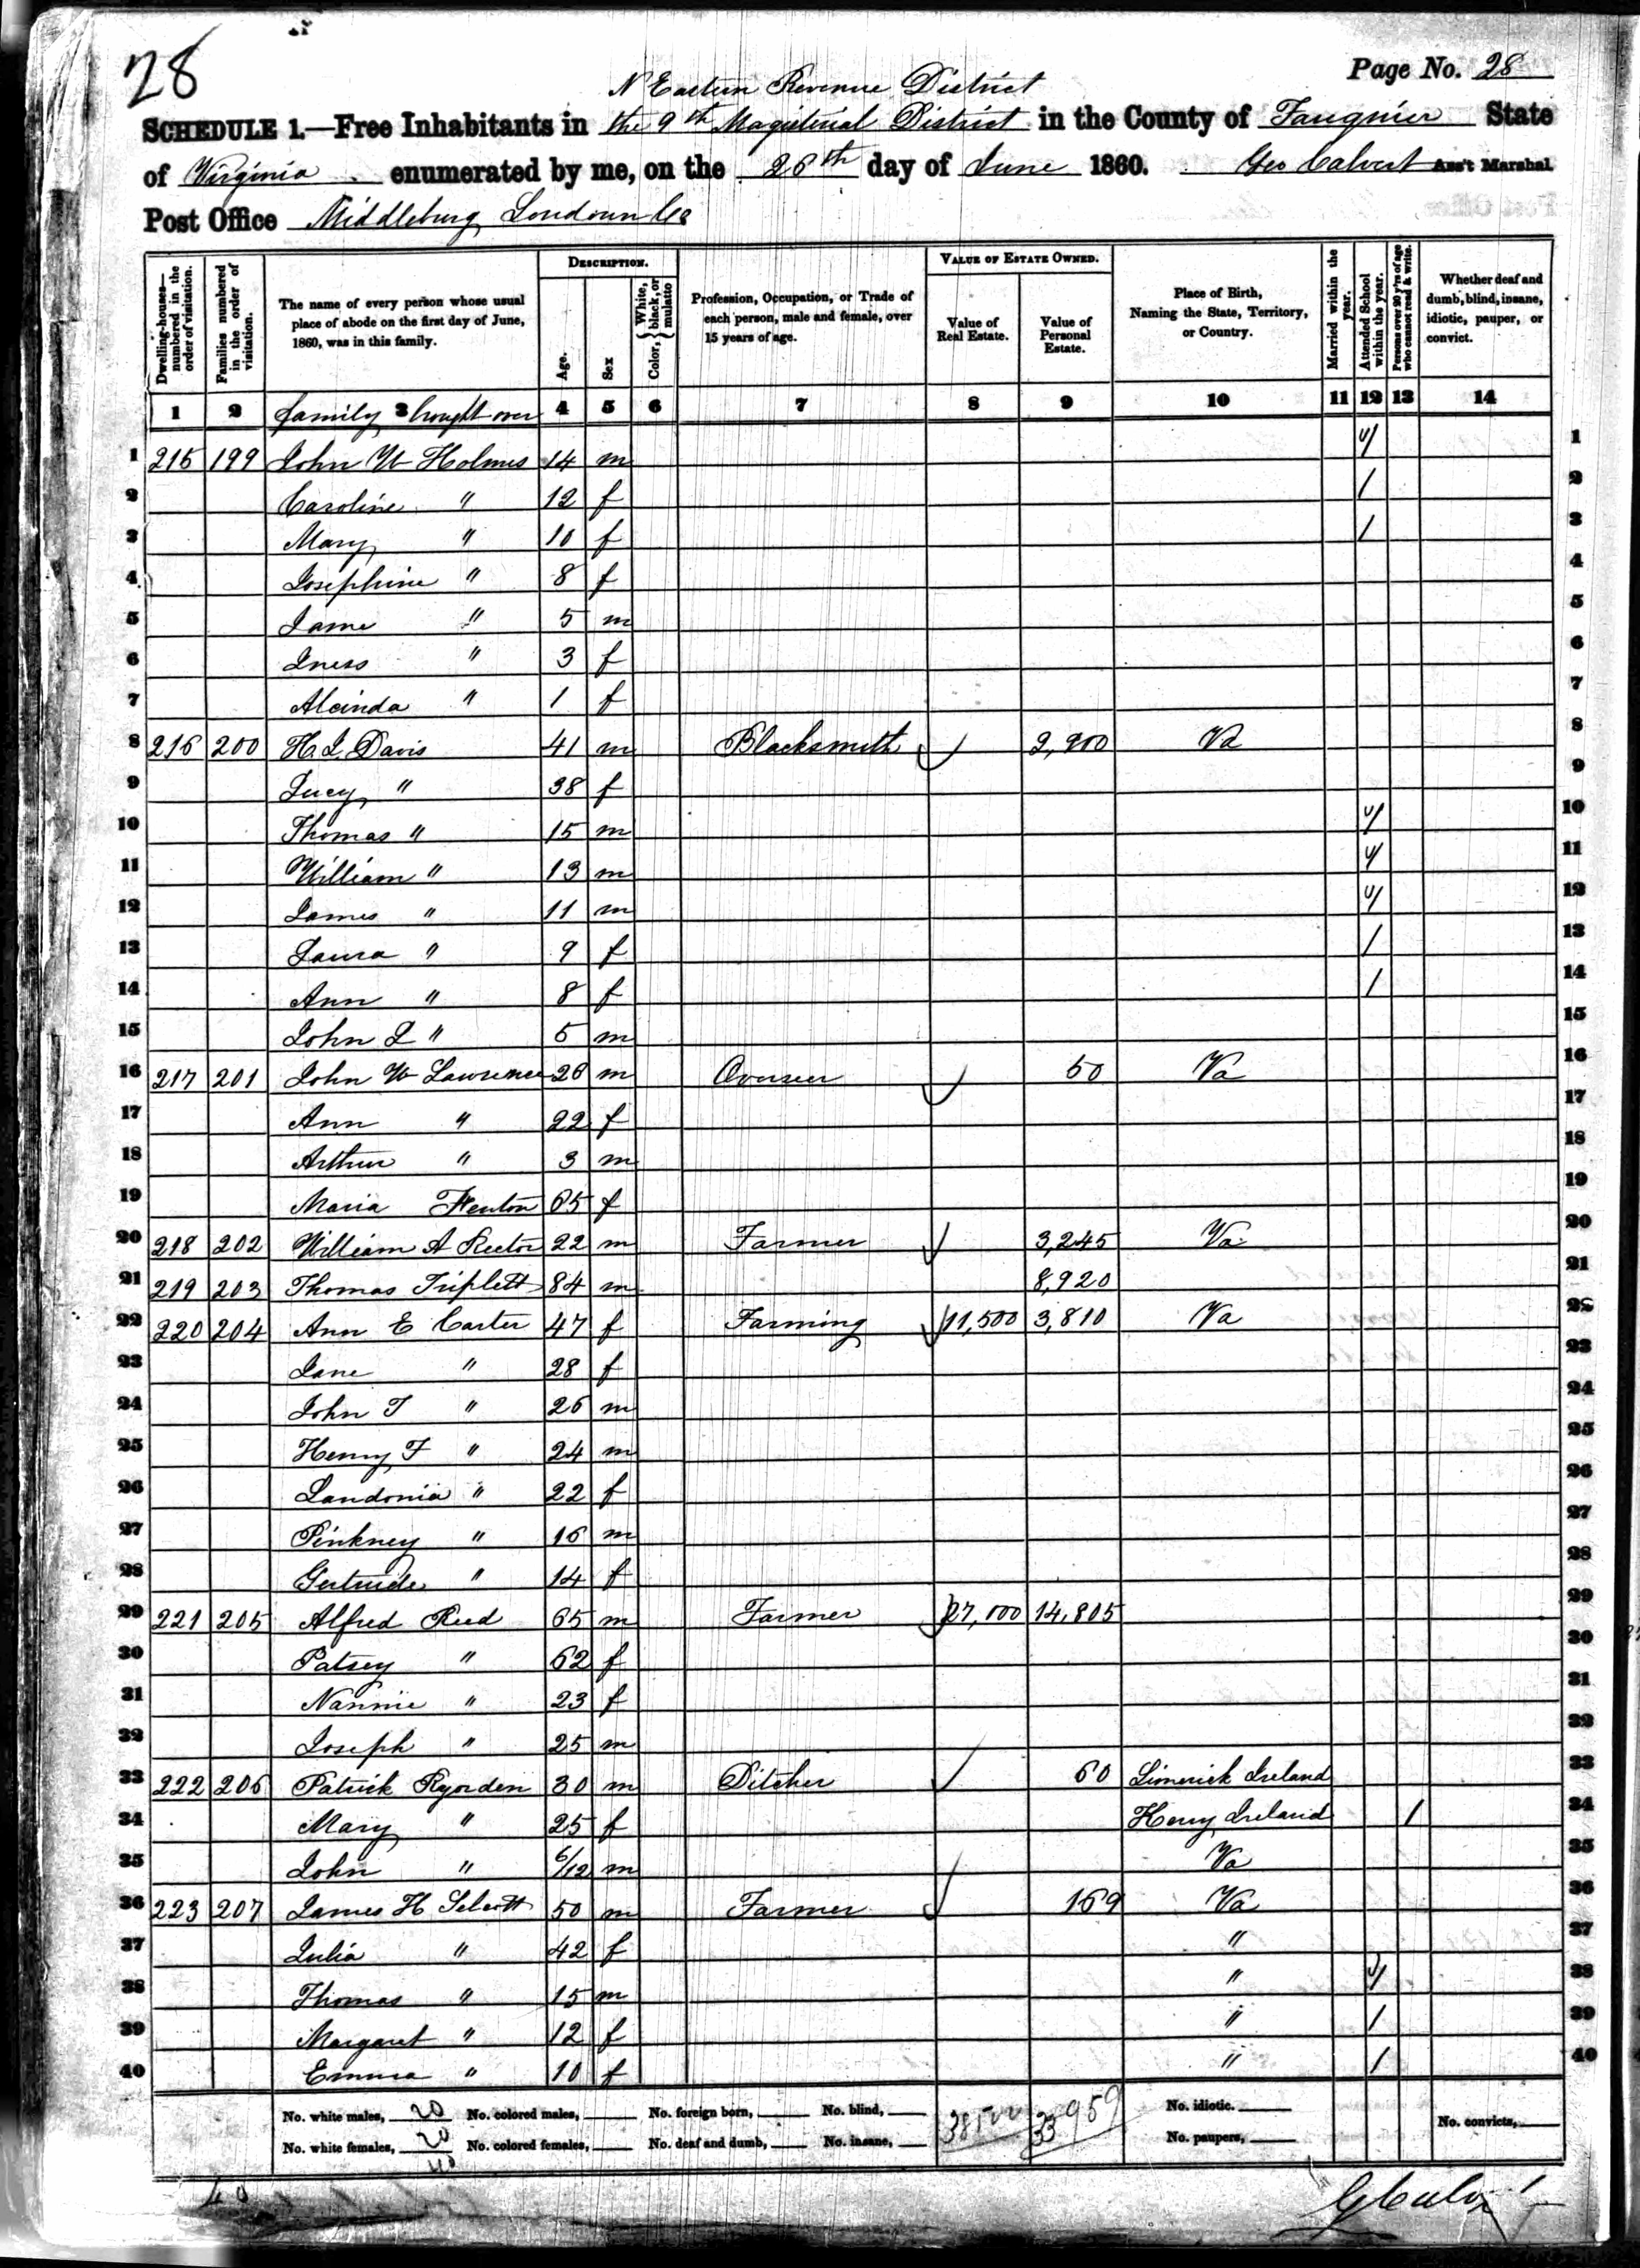 28
Page No. 28
N Eastern Revenue District
SCHEDULE 1.—Free Inhabitants in the 9th Magisterial District in the County of Fauquier State
of Virginia enumerated by me, on the 26th day of June 1860. Geo Calvert Ass't Marshal
Post Office Middleburg Loudoun Co
Dwelling-houses—numbered in the order of visitation.
Families numbered in the order of visitation.
The name of every person whose usual place of abode on the first day of June, 1860, was in this family.
DESCRIPTION.
Age.
Sex
Color, White, black, or mulatto
Profession, Occupation, or Trade of each person, male and female, over 15 years of age.
VALUE OF ESTATE OWNED.
Value of Real Estate.
Value of Personal Estate.
Place of Birth, Naming the State, Territory, or Country.
Married within the year.
Attended School within the year.
Persons over 20 y'rs of age who cannot read & write.
Whether deaf and dumb, blind, insane, idiotic, pauper, or convict.
1 2 family 3 brought over 4 5 6 7 8 9 10 11 12 13 14
1 215 199 John W Holmes 14 m 1 1
2 Caroline " 12 f / 2
3 Mary " 10 f / 3
4 Josephine " 8 f 4
5 Jame " 5 m 5
6 Iness " 3 f 6
7 Alcinda " 1 f 7
8 216 200 H. I. Davis 41 m Blacksmith 2,200 Va 8
9 Lucy " 38 f 9
10 Thomas " 15 m / 10
11 William " 13 m / 11
12 James " 11 m / 12
13 Laura " 9 f / 13
14 Ann " 8 f / 14
15 John L " 5 m 15
16 217 201 John W Lawrence 26 m Overseer 50 Va 16
17 Ann " 22 f 17
18 Arthur " 3 m 18
19 Maria Fenton 65 f 19
20 218 202 William A Rector 22 m Farmer 3,245 Va 20
21 219 203 Thomas Triplett 84 m 8,920 21
22 220 204 Ann E Carter 47 f Farming 11,500 3,810 Va 22
23 Jane " 28 f 23
24 John T " 26 m 24
25 Henry F " 24 m 25
26 Landonia " 22 f 26
27 Pinkney " 16 m 27
28 Gertrude " 14 f 28
29 221 205 Alfred Reed 65 m Farmer 27,000 14,805 29
30 Patsey " 62 f 30
31 Nannie " 23 f 31
32 Joseph " 25 m 32
33 222 206 Patrick Ryorden 30 m Ditcher 60 Limerick Ireland 33
34 Mary " 25 f Kerry Ireland / 34
35 John " 6/12 m Va 35
36 223 207 James H 50 m Farmer 169 Va 36
37 Julia " 42 f " 37
38 Thomas " 15 m " / 38
39 Margaret " 12 f " / 39
40 Emma " 10 f " / 40
No. white males, 20 No. colored males, No. foreign born, No. blind, 38500 33959 No. idiotic.
No. white females, 20 No. colored females, No. deaf and dumb, No. insane, No. paupers, No. convicts,
40